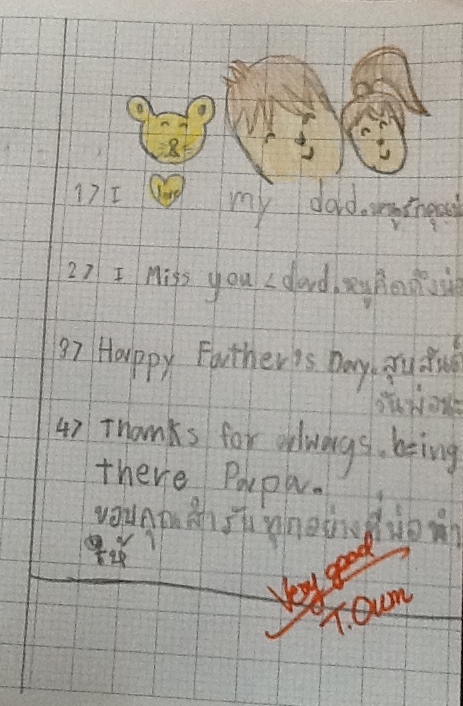 1> I love my dad. หนูรักคุณพ่
2> I Miss you < dad. หนูคิดถึงพ่อ
3> Happy Father's Day. สุขสันต์
วันพ่อนะ
4> Thanks for always. being
there Papa.
ขอบคุณสำรับทุกอย่างที่พ่อทำ
ให้
Very good
T. Oum